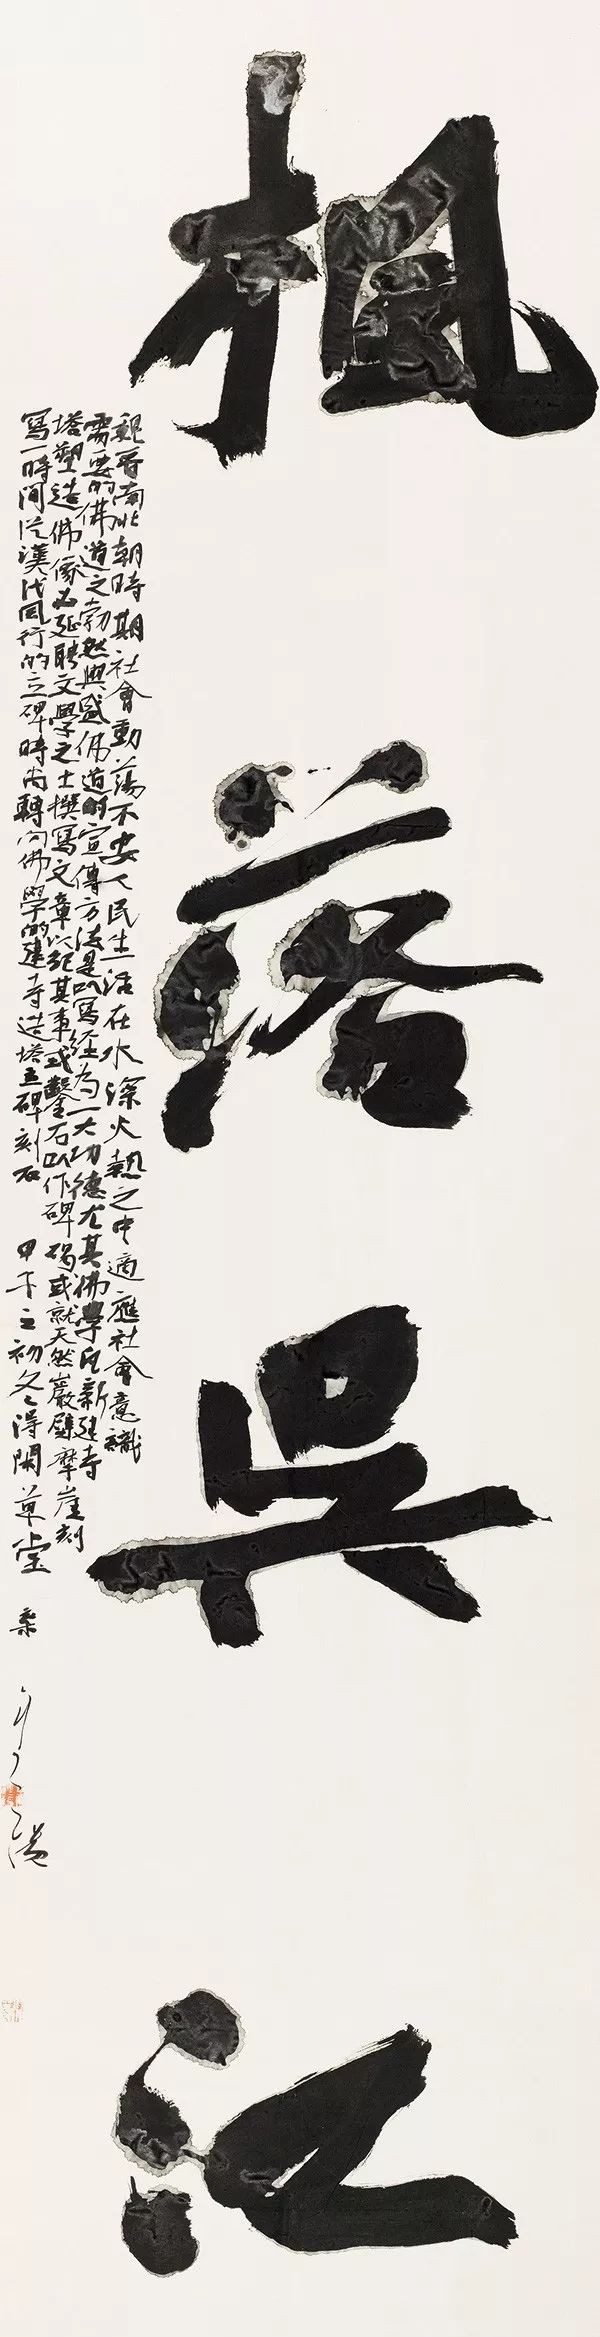 楓落吳江
魏晉南北朝時期社會動蕩不安人民生活在水深火熱之中適應社會意識
需要的佛道之勃然興盛佛道的宣傳方法是以寫經為一大功德尤其佛學凡新建寺
塔塑造佛像必延聘文學之士撰寫文章以紀其事或鑿石以作碑碣或就天然巖壁摩崖刻
寫一時間從漢代風行的立碑時尚轉向佛學的建寺造塔立碑刻石 甲午之初冬得閑草堂